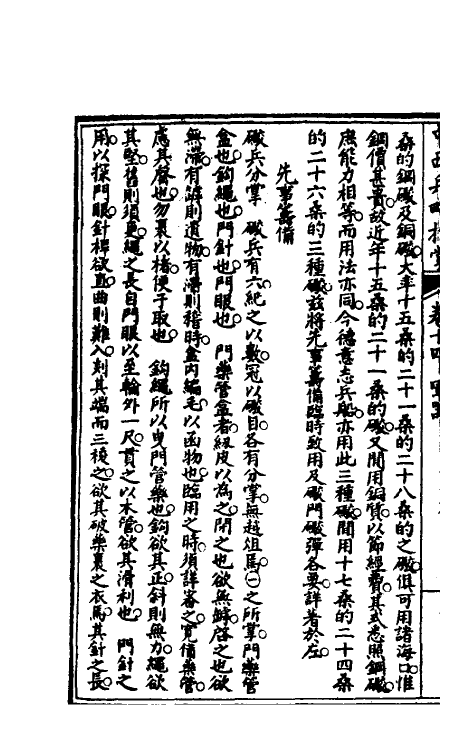 桑的鋼礮及銅礮大率十五桑的二十一桑的二十八桑的之礮俱可用諸海口惟
鋼價甚貴故近年十五桑的二十一桑的礮又間用銅質以節經費其式悉照鋼礮
應能力相等而用法亦同今德意志兵船亦用此三種礮間用十七桑的二十四桑
的二十六桑的三種礮茲將先事籌備臨時致用及礮門礮彈各要詳著於左
先事籌備
礮兵分掌 礮兵有六紀之以數冠以礮目各有分掌無越俎焉㊀之所掌門藥管
盒也鉤繩也門針也門眼也 門藥管盒者紉皮以為之閉之也欲無罅啓之也欲
無滯有罅則遺物有滯則稽時盒內編毛以函物也臨用之時須詳審之寬備藥管
慮其罄也勿裹以楮便于取也 鉤繩所以曳門管藥也鉤欲其正斜則無力繩欲
其堅舊則須更繩之長自門眼以至輪外一尺貫之以木管欲其滑利也 門針之
用以探門眼針桿欲直曲則難入刻其端而三稜之欲其破藥裹之衣焉其針之長